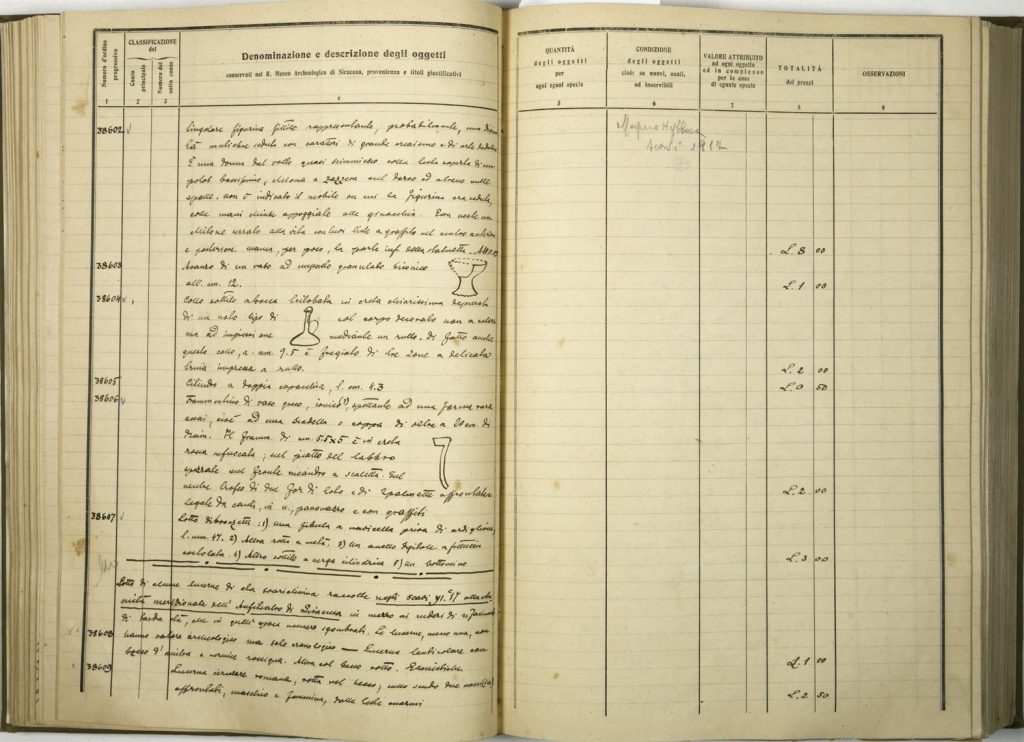 Numero d'ordine progressivo
CLASSIFICAZIONE del
Conto principale
Numero del sotto conto
Denominazione e descrizione degli oggetti
conservati nel R. Museo Archeologico di Siracusa, provenienza e titoli giustificativi
1 2 3 4
QUANTITÀ degli oggetti per ogni eguale specie
CONDIZIONE degli oggetti cioè: se nuovi, usati, od inservibili
VALORE ATTRIBUITO ad ogni oggetto ed in complesso per le cose di eguale specie
TOTALITÀ dei prezzi
OSSERVAZIONI
5 6 7 8 9
38602 Singolare figurina fittile rappresentante, probabilmente, una divini
tà muliebre seduta con caratteri di grande arcaismo e di arte
È una donna dal volto quasi scimmiesco colla testa coperta di un
polos bassissimo, chioma a zazzera sul dorso ed
spalle. non è indicato il mobile su cui la figurina era seduta,
colle mani chiuse appoggiate alle ginocchia. Essa veste un
chitone serrato alla vita con due liste a graffito nel centro anteriore
e posteriore. manca, per poco, la parte inf. della statuetta.
L. 8 00
38603 Avanzo di un vaso ad impasto granulato biconico
alt. cm. 12.
L. 1 00
38604 Collo fittile a bocca trilobata in creta chiarissima depurata
di un noto tipo di col corpo decorato non a colore
ma ad impressione mediante un rullo. Di fatto anche
questo collo, a. mm. 9.5 è fregiato di tre zone a delicata
impressa a rullo.
L. 2 00
38605 Cilindro a doppia capocchia, l. cm. 4.3
L. 0 50
38606 Frammentino di vaso greco, ionico, spettante ad una forma rara
assai, cioè ad una scodella o coppa di oltre a 20 cm. di
diam. Il framm. di cm. 5.5 x 5 è in creta
rosea infuocata; nel piatto del labbro
sul fronte meandro a scaletta. Sul
ventre trofeo di due fior di loto e di 2 palmette affrontate
legate da cauli, in n., paonazzo e con graffiti
L. 2 00
38607 Lotto di bronzetti: 1) una fibula a navicella priva di ardiglione,
l. mm. 47. 2) Altra rotta a metà. 3) Un anello digitale a fettuccia
4) Altro sottile a verga cilindrica 5) Un bottoncino
L. 3 00
Lotto di alcune lucerne di età raccolte negli scavi alla
meridionale dell'Anfiteatro di Siracusa in mezzo ai ruderi di
di tarda età, che in quell'epoca vennero sgombrati. Le lucerne, meno una, non
38608 hanno valore archeologico ma solo cronologico — Lucerna lenticolare con
becco d'incudine e vernice rossigna. Altra col becco rotto.
L. 1 00
38609 Lucerna circolare romana, rotta nel becco; nello scudo due
affrontati, maschio e femmina, dalle teste enormi
L. 2 50
1917